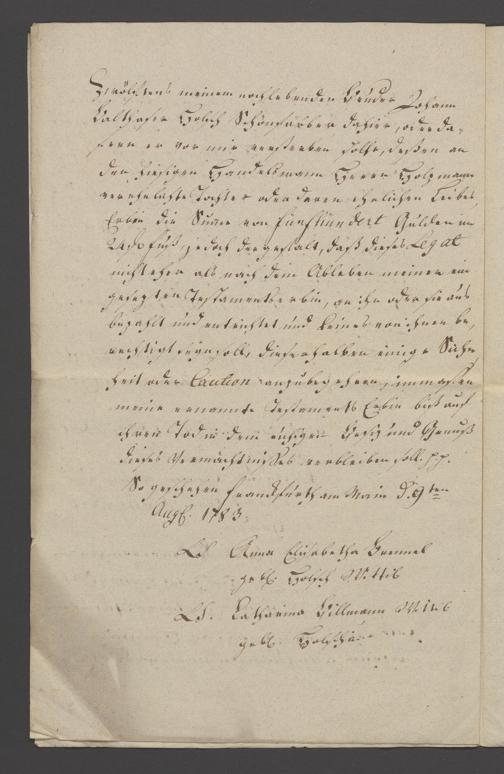 Zwölftens meinem nochlebenden Bruder Johann
Balthasar Holsch Schönfärber dahier, oder da-
fern er vor mir versterben sollte, dessen an
den hiesigen Handelsmann Herrn Holzmann
verehelichte Tochter oder deren ehelichen Leibes
Erben die Summe von Fünfhundert Gulden im
jedoch dergestalt, daß dieses Legat
nicht eher als nach dem Ableben meiner ein
gesetzten Testamentserbin, an ihn oder sie aus
bezahlt und entrichtet und keines von ihnen be,
rechtigt seyn soll, dieserhalben einige Sicher
heit oder Caution anzubegehren, immaßen
meine ernannte Testaments Erbin biß auf
ihren Tod in dem ruhigen Besitz und Genuß
dieses Vermächtnisses verbleiben soll.
So geschehen Franckfurth am Mayn d. 9ten
Augst. 1783.
LS. Anna Elisabetha Bremel
gebl. Holsch Wittib
LS. Catharina Billmann Witib
gebl. Holschin